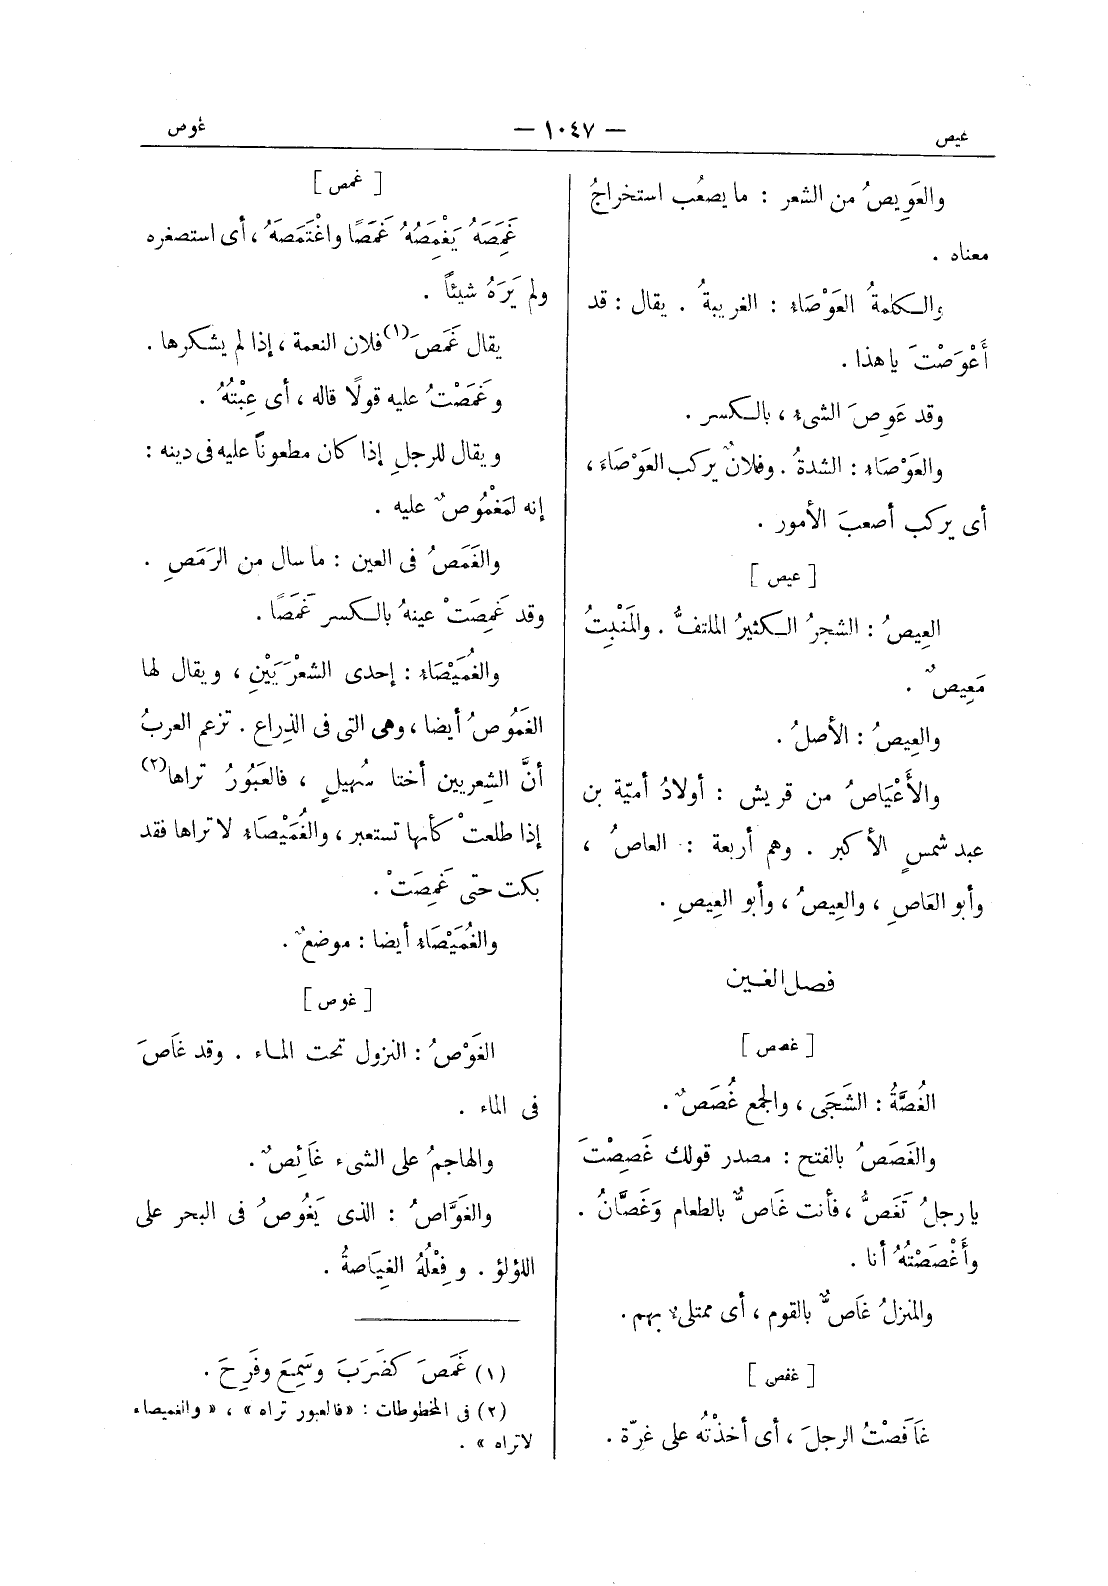 عيص
— ١٠٤٧ —
غوص
والعَوِيصُ من الشعر : ما يصعُب استخراجُ
معناه .
والكلمةُ العَوْصَاء : الغريبةُ . يقال : قد
أَعْوَصْتَ ياهذا .
وقد عَوِصَ الشىء ، بالكسر .
والعَوْصَاء : الشدةُ . وفلانٌ يركب العَوْصَاءَ ،
أى يركب أصعبَ الأمور .
[ عيص ]
العِيصُ : الشجرُ الكثيرُ الملتفُّ . والمَنْبِتُ
مَعِيصٌ .
والعِيصُ : الأصلُ .
والأَعْيَاصُ من قريش : أولادُ أميّة بن
عبد شمسٍ الأكبر . وهم أربعة : العاصُ ،
وأبو العَاصِ ، والعِيصُ ، وأبو العِيصِ .
فصل الغين
[ غصص ]
الغُصَّةُ : الشَجَى ، والجمع غُصَصٌ .
والغَصَصُ بالفتح : مصدر قولك غَصِصْتَ
يا رجلُ تَغَصُّ ، فأنت غَاصٌّ بالطعام وَغَصَّانُ .
وأَغْصَصْتُهُ أنا .
والمنزلُ غَاصٌّ بالقوم ، أى ممتلىء بهم .
[ غفص ]
غَافَصْتُ الرجلَ ، أى أخذْتُه على غرّة .
[ غمص ]
غَمِصَهُ يَغْمِصُهُ غَمَصًا واغْتَمَصَهُ ، أى استصغره
ولم يَرَهُ شيئاً .
يقال غَمَصَ (١) فلان النعمة ، إذا لم يشكرها .
وغَمَصْتُ عليه قولًا قاله ، أى عِبْتُهُ .
ويقال للرجلِ إذا كان مطعوناً عليه فى دينه :
إنه لمَغْمُوصٌ عليه .
والغَمَصُ فى العين : ما سال من الرَمَصِ .
وقد غَمِصَتْ عينهُ بالكسر غَمَصًا .
والغُمَيْصَاء : إحدى الشعْرَيَيْنِ ، ويقال لها
الغَمُوصُ أيضا ، وهى التى فى الذِراع . تزعم العربُ
أنَّ الشِعريين أختا سُهيلٍ ، فالعَبُورُ تراها (٢)
إذا طلعتْ كأنها تستعبر ، والغُمَيْصَاء لا تراها فقد
بكت حتى غَمِصَتْ .
والغُمَيْصَاء أيضا : موضعٌ .
[ غوص ]
الغَوْصُ : النزول تحت الماء . وقد غَاصَ
فى الماء .
والهاجمُ على الشىء غَائِصٌ .
والغَوَّاصُ : الذى يَغُوصُ فى البحر على
اللؤلؤ . وفِعْلُهُ الغِيَاصةُ .
(١) غَمَصَ كَضَرَبَ وسَمِعَ وفَرِحَ .
(٢) فى المخطوطات : «فالعبور تراه » ، « والغميصاء
لا تراه » .